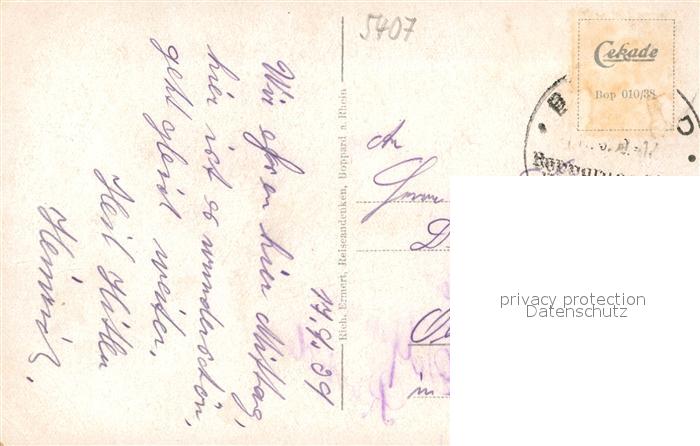 5407
Cekade
Bop 010/38
Boppard
17.9.39
Wir essen hier Mittag,
hier ist es wunderschön,
geht gleich weiter.
Heil Hitler
Heinrich.
Rich. Ermert, Reiseandenken, Boppard a. Rhein
An
Herrn
in
privacy protection
Datenschutz